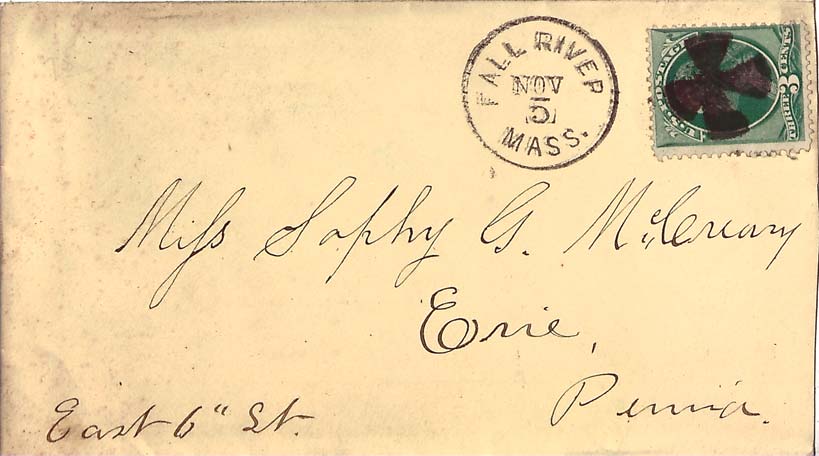 FALL RIVER
NOV
5
MASS.
U.S. POSTAGE
3
THREE CENTS
Miss Sophy G. McCreary
Erie,
Penn'a.
East 6" St.